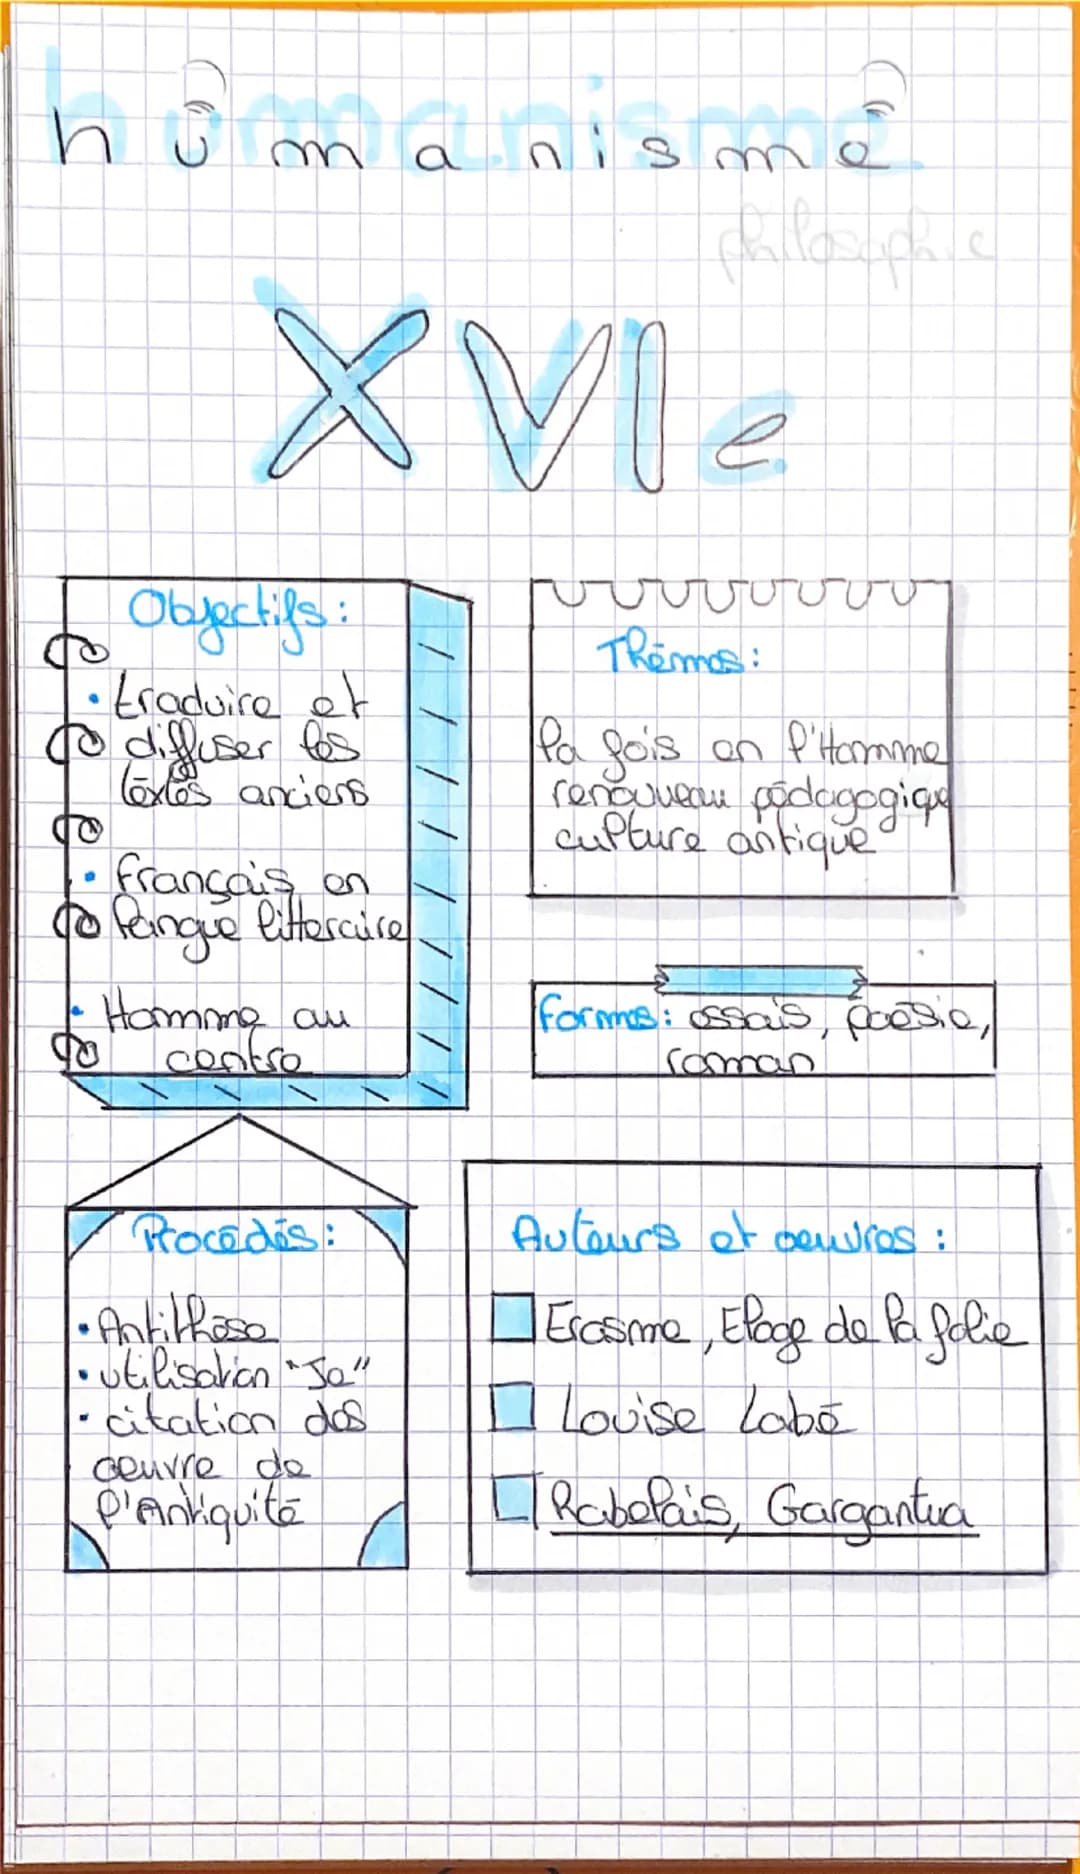 humanisme
philosophie
XVIe
Objectifs :
• traduire et
diffuser les
textes anciens
• Français en
langue litteraire
• Homme au
centre
Thèmes :
la fois en l'Homme
renouveau pédagogique
culture antique
formes : essais, poésie,
roman
Procédés :
• Antithèse
• utilisation "Je"
• citation des
oeuvre de
l'Antiquité
Auteurs et oeuvres :
Erasme, Eloge de la folie
Louise Labé
Rabelais, Gargantua